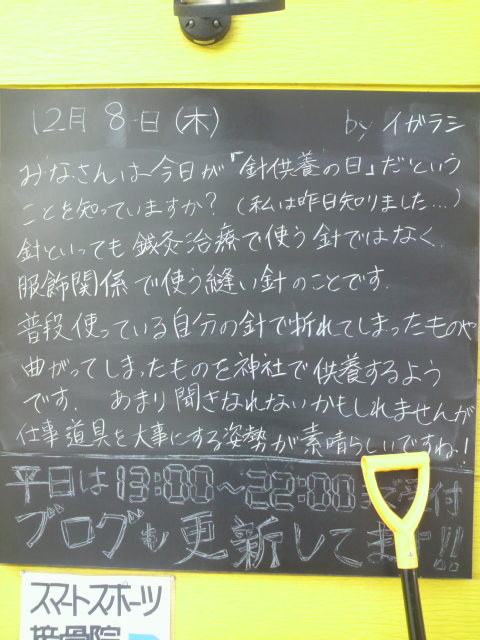 12月 8日 (木) by イガラシ
みなさんは今日が『針供養の日』だという
ことを知っていますか? (私は昨日知りました...)
針といっても鍼灸治療で使う針ではなく、
服飾関係で使う縫い針のことです.
普段使っている自分の針で折れてしまったものや
曲がってしまったものを神社で供養するよう
です. あまり聞きなれないかもしれませんが
仕事道具を大事にする姿勢が素晴らしいですね!
平日は13:00~22:00まで受付
ブログも更新してます!!
スマートスポーツ
接骨院